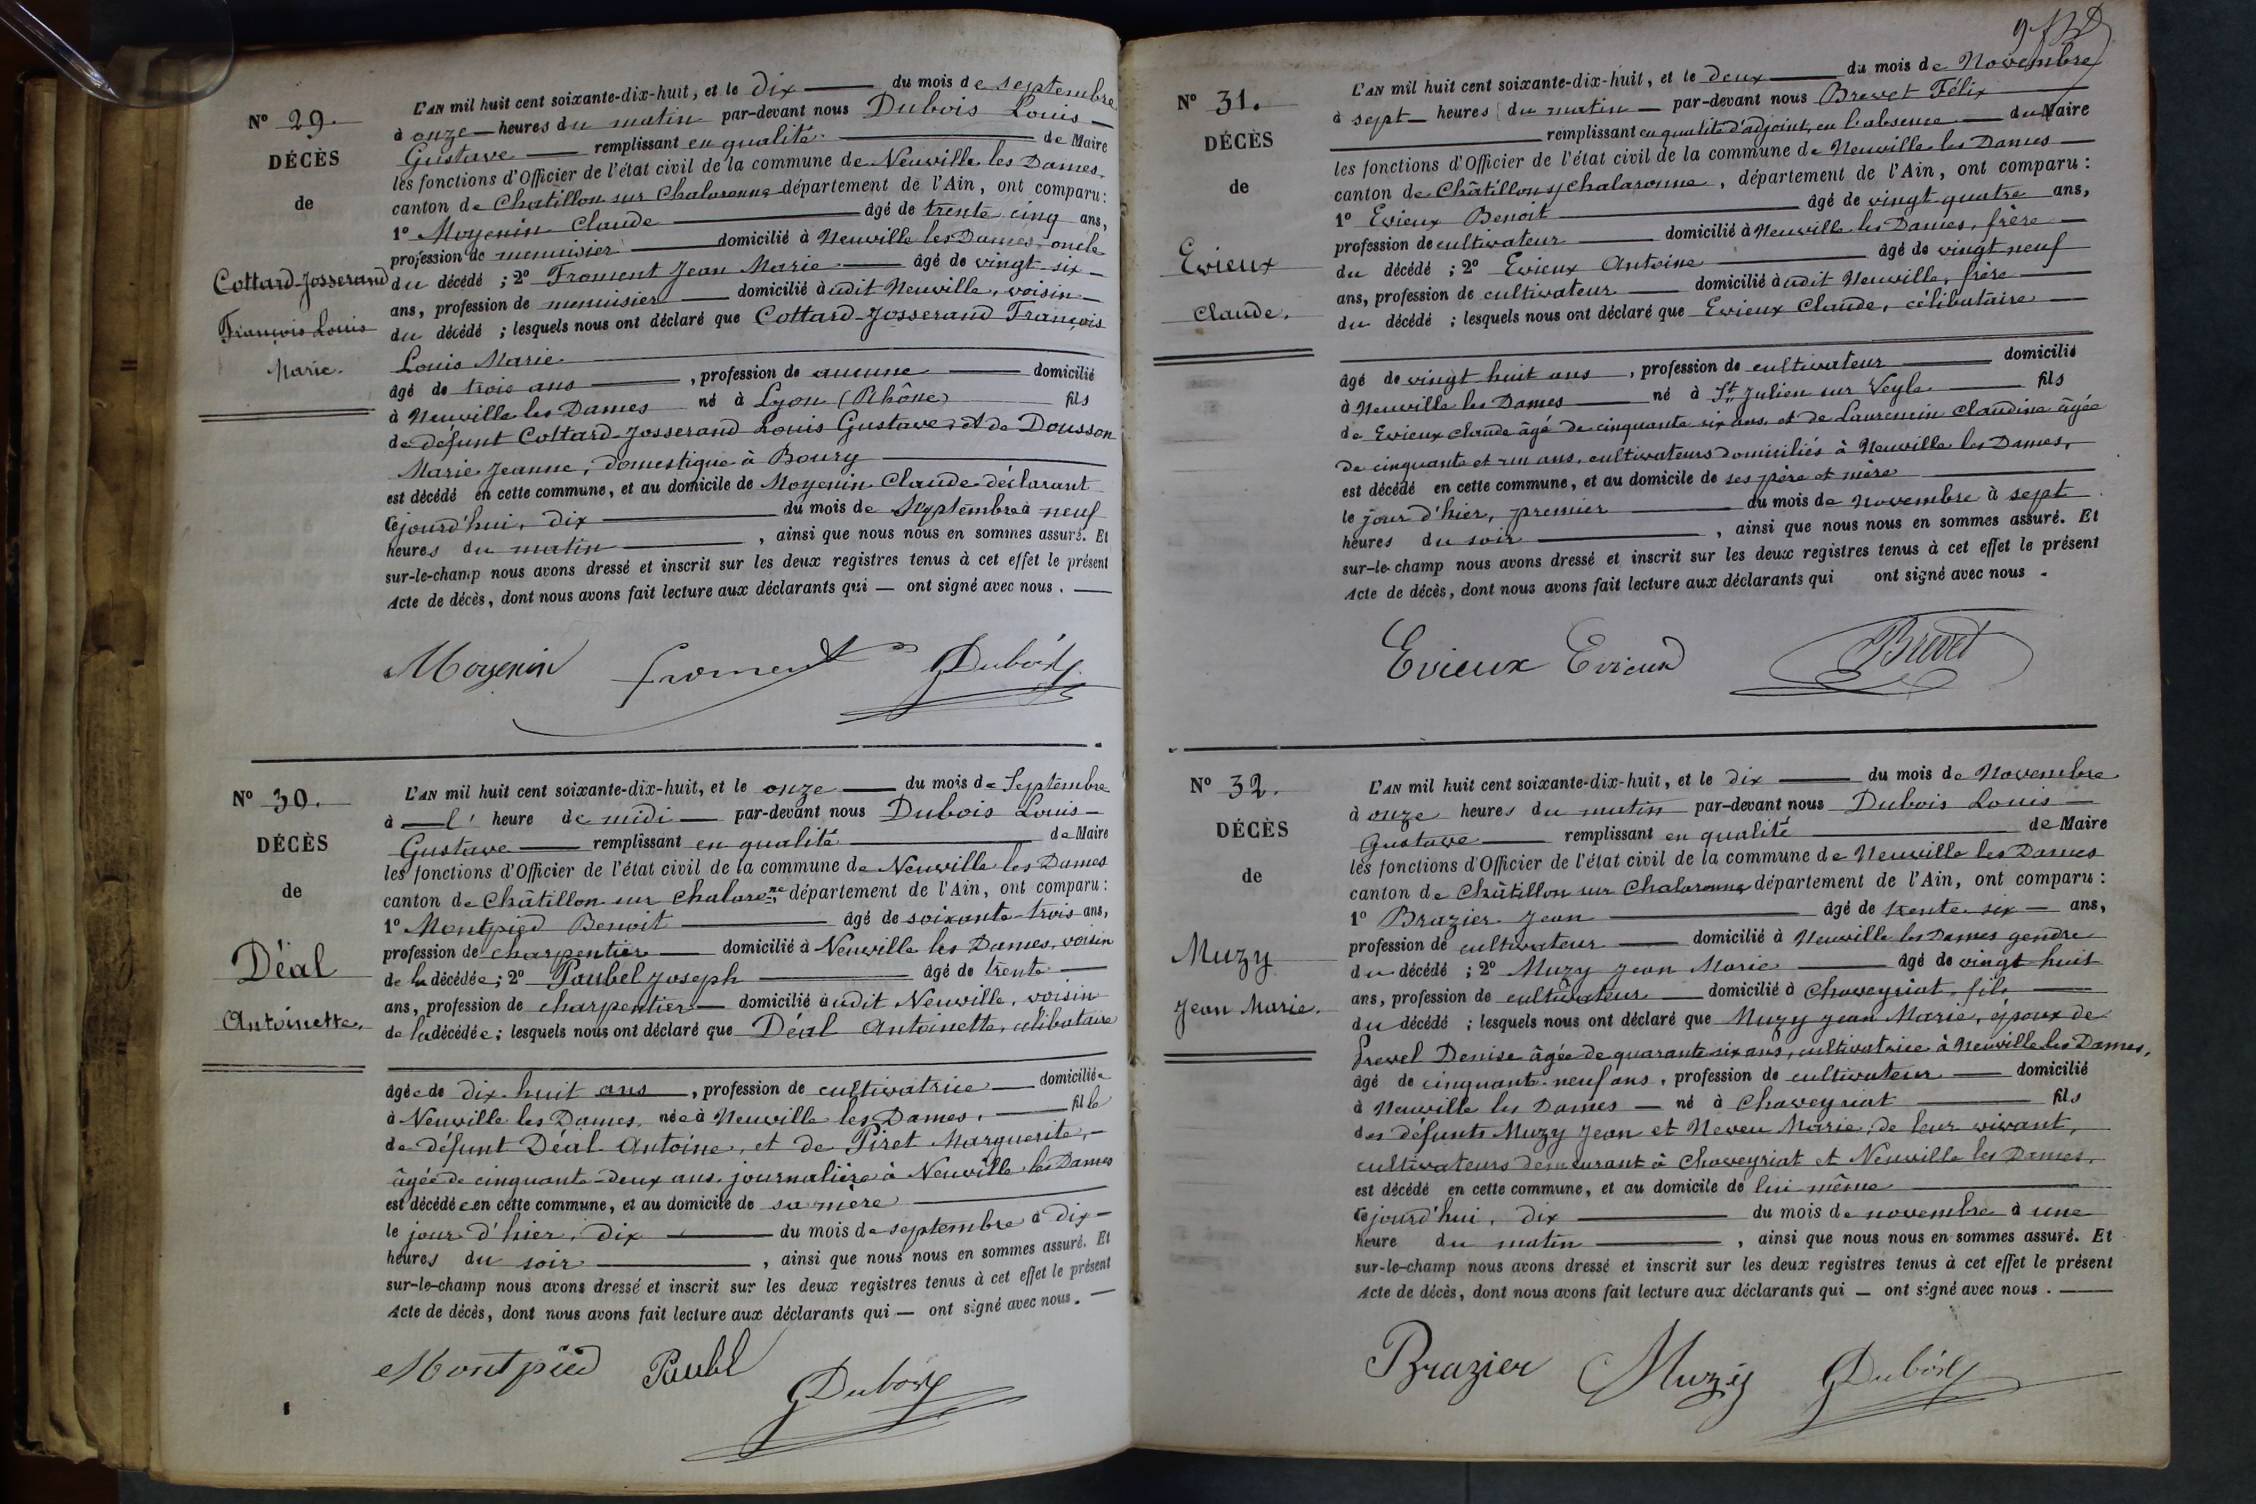 Nº 29.
DÉCÈS
de
Cottard-Josserand
François Louis
Marie.
L'AN mil huit cent soixante-dix-huit, et le dix du mois de septembre
à onze heures du matin par-devant nous Dubois Louis
Gustave remplissant en qualité de Maire
les fonctions d'Officier de l'état civil de la commune de Neuville les Dames
canton de Châtillon sur Chalaronne département de l'Ain, ont comparu :
1º Moyenin Claude âgé de trente cinq ans,
profession de menuisier domicilié à Neuville les Dames, oncle
du décédé ; 2º Froment Jean Marie âgé de vingt-six
ans, profession de menuisier domicilié à udit Neuville, voisin
du décédé ; lesquels nous ont déclaré que Cottard-Josserand François
Louis Marie
âgé de trois ans, profession de aucune domicilié
à Neuville les Dames né à Lyon (Rhône) fils
de défunt Cottard-Josserand Louis Gustave et de Dousson
Marie Jeanne, domestique à Bourg
est décédé en cette commune, et au domicile de Moyenin Claude déclarant
Cejourd'hui, dix du mois de Septembre à neuf
heures du matin, ainsi que nous nous en sommes assuré. Et
sur-le-champ nous avons dressé et inscrit sur les deux registres tenus à cet effet le présent
Acte de décès, dont nous avons fait lecture aux déclarants qui — ont signé avec nous. —
Moyenin froment GDubois
Nº 30.
DÉCÈS
de
Déal
Antoinette.
L'AN mil huit cent soixante-dix-huit, et le onze du mois de Septembre
à l' heure de midi par-devant nous Dubois Louis
Gustave remplissant en qualité de Maire
les fonctions d'Officier de l'état civil de la commune de Neuville les Dames
canton de Châtillon sur Chalaronne, département de l'Ain, ont comparu :
1º Montpied Benoit âgé de soixante-trois ans,
profession de charpentier domicilié à Neuville les Dames, voisin
de la décédée ; 2º Paubel Joseph âgé de trente
ans, profession de charpentier domicilié à udit Neuville, voisin
de la décédée ; lesquels nous ont déclaré que Déal Antoinette, célibataire
âgée de dix huit ans, profession de cultivatrice domiciliée
à Neuville les Dames, née à Neuville les Dames, fille
de défunt Déal Antoine, et de Piret Marguerite,
âgée de cinquante-deux ans, journalière à Neuville les Dames
est décédée en cette commune, et au domicile de sa mère
le jour d'hier, dix du mois de septembre à dix
heures du soir, ainsi que nous nous en sommes assuré. Et
sur-le-champ nous avons dressé et inscrit sur les deux registres tenus à cet effet le présent
Acte de décès, dont nous avons fait lecture aux déclarants qui — ont signé avec nous. —
Montpied Paubl GDubois
Nº 31.
DÉCÈS
de
Evieux
Claude.
L'AN mil huit cent soixante-dix-huit, et le deux du mois de Novembre
à sept heures du matin par-devant nous Brevet Félix
remplissant en qualité d'adjoint, en l'absence du Maire
les fonctions d'Officier de l'état civil de la commune de Neuville les Dames
canton de Châtillon s/ Chalaronne, département de l'Ain, ont comparu :
1º Evieux Benoit âgé de vingt quatre ans,
profession de cultivateur domicilié à Neuville les Dames, frère
du décédé ; 2º Evieux Antoine âgé de vingt neuf
ans, profession de cultivateur domicilié à udit Neuville, frère
du décédé ; lesquels nous ont déclaré que Evieux Claude, célibataire
âgé de vingt huit ans, profession de cultivateur domicilié
à Neuville les Dames né à St Julien sur Veyle fils
de Evieux Claude âgé de cinquante six ans, et de Laurencin Claudine âgée
de cinquante et un ans, cultivateurs domiciliés à Neuville les Dames,
est décédé en cette commune, et au domicile de ses père et mère
le jour d'hier, premier du mois de novembre à sept
heures du soir, ainsi que nous nous en sommes assuré. Et
sur-le-champ nous avons dressé et inscrit sur les deux registres tenus à cet effet le présent
Acte de décès, dont nous avons fait lecture aux déclarants qui ont signé avec nous.
Evieux Evieux Brevet
Nº 32.
DÉCÈS
de
Muzy
Jean Marie.
L'AN mil huit cent soixante-dix-huit, et le dix du mois de Novembre
à onze heures du matin par-devant nous Dubois Louis
Gustave remplissant en qualité de Maire
les fonctions d'Officier de l'état civil de la commune de Neuville les Dames
canton de Châtillon sur Chalaronne département de l'Ain, ont comparu :
1º Brazier Jean âgé de trente six ans,
profession de cultivateur domicilié à Neuville les Dames gendre
du décédé ; 2º Muzy Jean Marie âgé de vingt huit
ans, profession de cultivateur domicilié à Chaveyriat, fils
du décédé ; lesquels nous ont déclaré que Muzy Jean Marie, époux de
Prevel Denise âgée de quarante six ans, cultivatrice à Neuville les Dames,
âgé de cinquante-neuf ans, profession de cultivateur domicilié
à Neuville les Dames né à Chaveyriat fils
des défunts Muzy Jean et Neveu Marie, de leur vivant,
cultivateurs demeurant à Chaveyriat et Neuville les Dames,
est décédé en cette commune, et au domicile de lui même
Cejourd'hui, dix du mois de novembre à une
heure du matin, ainsi que nous nous en sommes assuré. Et
sur-le-champ nous avons dressé et inscrit sur les deux registres tenus à cet effet le présent
Acte de décès, dont nous avons fait lecture aux déclarants qui — ont signé avec nous. —
Brazier Muzy GDubois